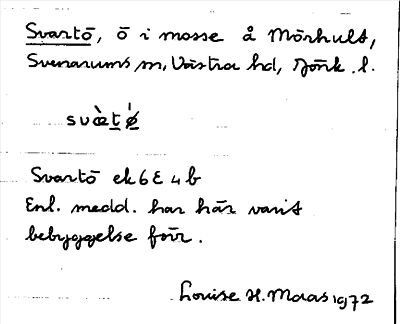 Svartö, ö i mosse å Mörhult,
Svenarums sn, Västra hd, Jönk. l.
svæ̀t̲ǿ̲
Svartö ek 6E 4b
Enl. medd. har här varit
bebyggelse förr.
Louise H. Maas 1972